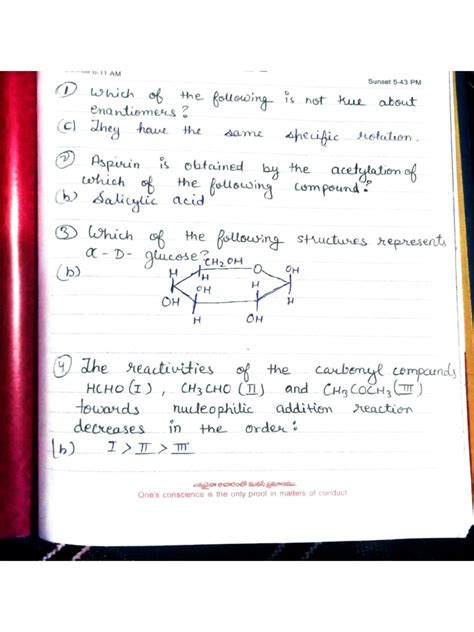 6-11 AM
Sunset 5-43 PM
① Which of the following is not true about
enantiomers?
(c) They have the same specific rotation.
② Aspirin is obtained by the acetylation of
which of the following compound?
(b) Salicylic acid
③ Which of the following structures represents
α-D-glucose?
(b)
CH₂OH
H
H
O
OH
OH
H
OH
H
H
OH
④ The reactivities of the carbonyl compounds
HCHO (I), CH₃CHO (II) and CH₃COCH₃ (III)
towards nucleophilic addition reaction
decreases in the order:
(b) I > II > III
One's conscience is the only proof in matters of conduct